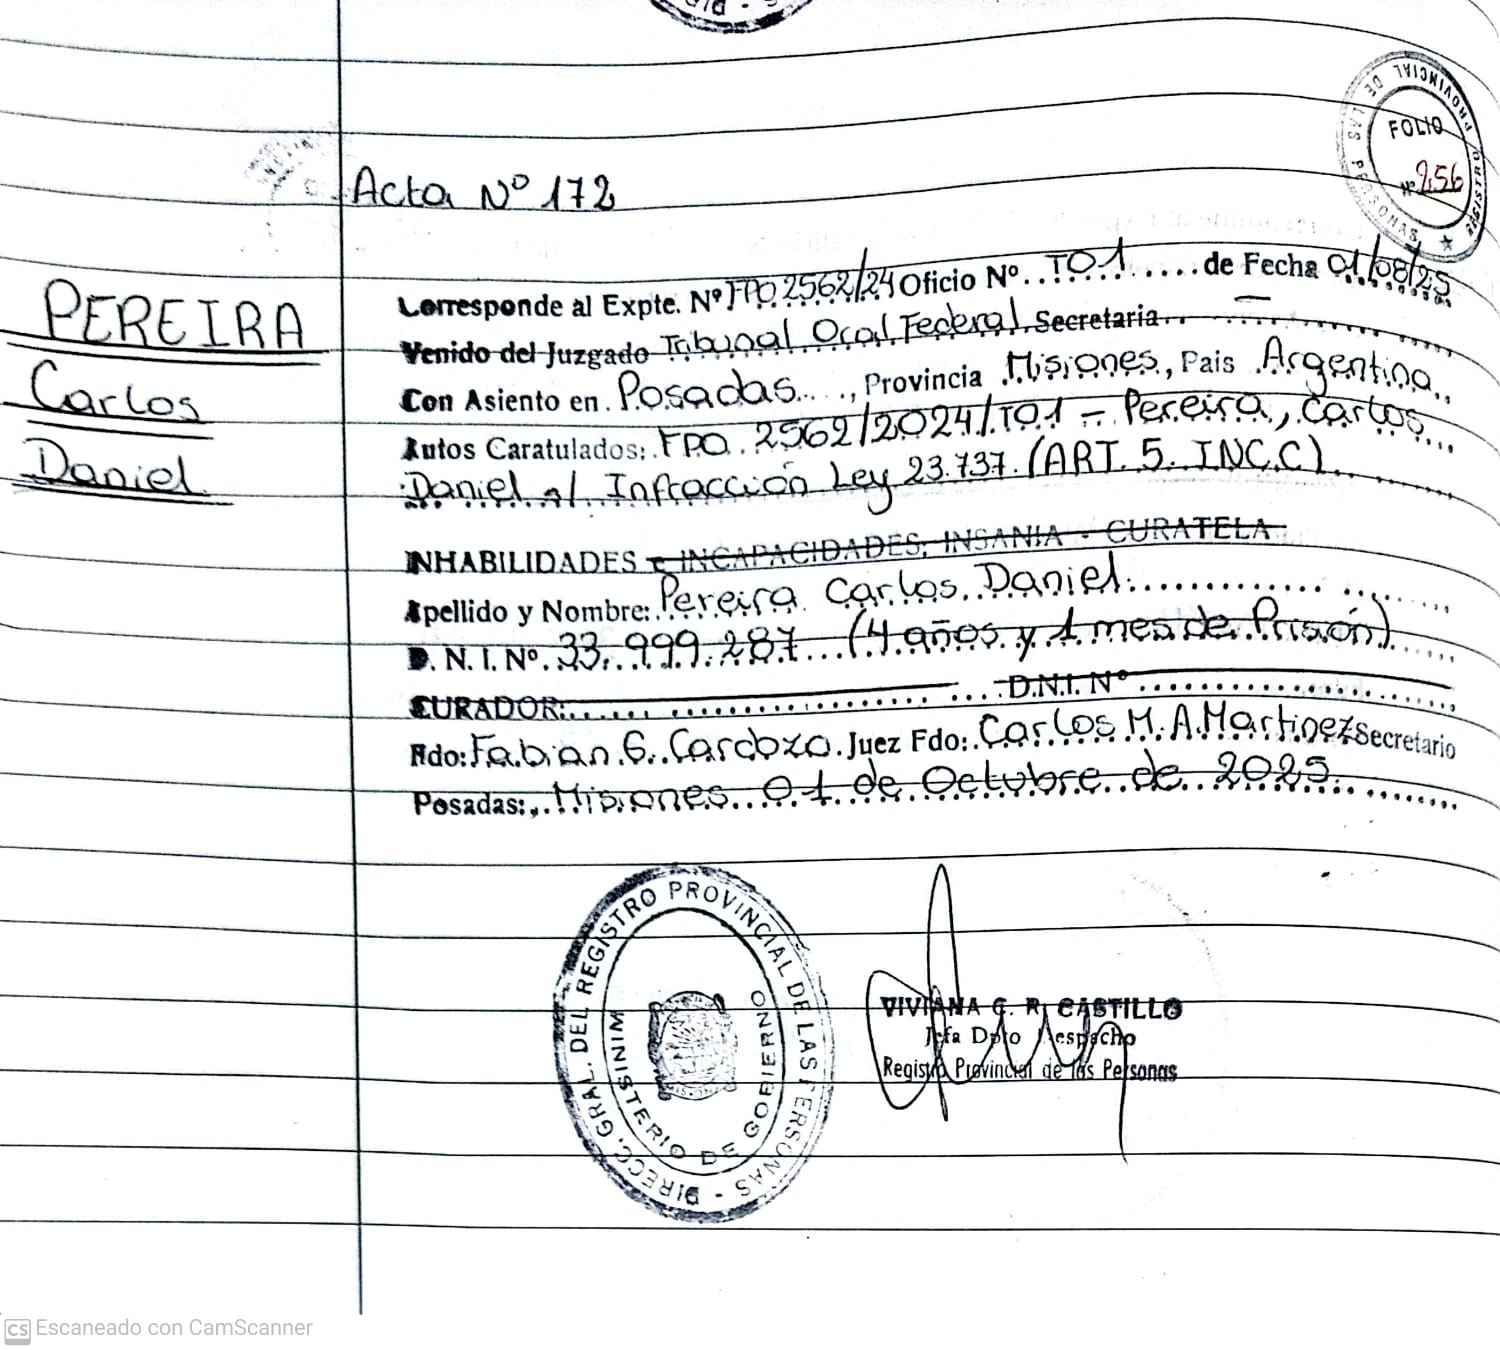 FOLIO
Nº 256
REGISTRO PROVINCIAL DE LAS PERSONAS
Acta Nº 172
PEREIRA
Carlos
Daniel
Corresponde al Expte. Nº FPO 2562/24 Oficio Nº. TO1 ..... de Fecha 01/08/25
Venido del Juzgado Tribunal Oral Federal. Secretaria. — 
Con Asiento en. Posadas...., Provincia Misiones, Pais Argentina..
Autos Caratulados: FPO. 2562/2024/TO1 - Pereira, Carlos
Daniel s/ Infracción Ley 23.737. (ART. 5. INC.C)
INHABILIDADES e INCAPACIDADES, INSANIA - CURATELA
Apellido y Nombre: Pereira Carlos Daniel
D. N. I. Nº. 33.999.287 (4 años y 1 mes de Prisión)
CURADOR: D.N.I. Nº
Fdo: Fabian G. Cardozo. Juez Fdo: Carlos M. A. Martinez Secretario
Posadas: Misiones 01 de Octubre de 2025.
DIRECC. GRAL. DEL REGISTRO PROVINCIAL DE LAS PERSONAS -
MINISTERIO DE GOBIERNO
VIVIANA G. R. CASTILLO
Jefa Dpto Despacho
Registro Provincial de las Personas
CS Escaneado con CamScanner